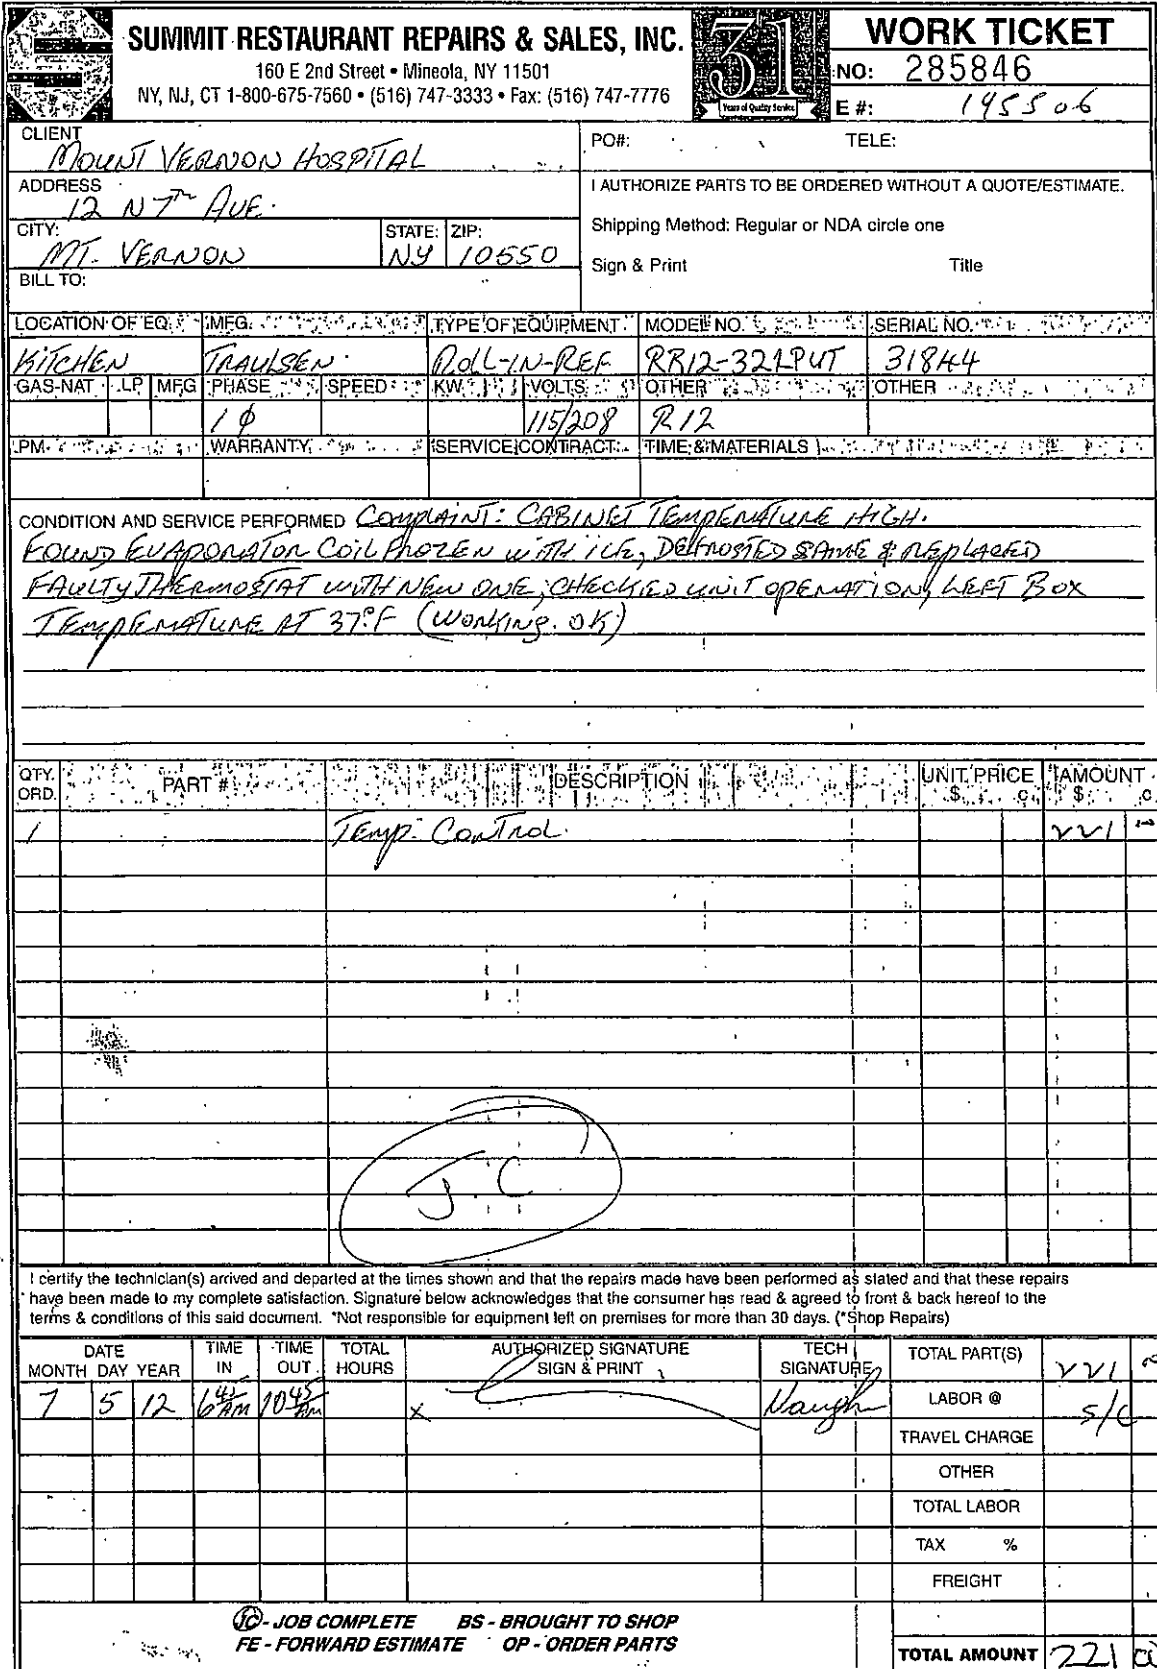 SUMMIT RESTAURANT REPAIRS & SALES, INC.
160 E 2nd Street • Mineola, NY 11501
NY, NJ, CT 1-800-675-7560 • (516) 747-3333 • Fax: (516) 747-7776
31
Years of Quality Service
WORK TICKET
NO: 285846
E #: 195506
CLIENT
MOUNT VERNON HOSPITAL
PO#: TELE:
ADDRESS
12 N 7TH AVE.
I AUTHORIZE PARTS TO BE ORDERED WITHOUT A QUOTE/ESTIMATE.
CITY: STATE: ZIP:
MT. VERNON NY 10550
Shipping Method: Regular or NDA circle one
Sign & Print Title
BILL TO:
LOCATION OF EQ. MFG. TYPE OF EQUIPMENT MODEL NO. SERIAL NO.
KITCHEN TRAULSEN ROLL-IN-REF RR12-32LPUT 31844
GAS-NAT LP MFG PHASE SPEED KW VOLTS OTHER OTHER
1 φ 115/208 R12
PM WARRANTY SERVICE CONTRACT TIME & MATERIALS
CONDITION AND SERVICE PERFORMED COMPLAINT: CABINET TEMPERATURE HIGH.
FOUND EVAPORATOR COIL FROZEN WITH ICE, DEFROSTED SAME & REPLACED
FAULTY THERMOSTAT WITH NEW ONE, CHECKED UNIT OPERATION, LEFT BOX
TEMPERATURE AT 37°F (WORKING. OK)
QTY. ORD. PART # DESCRIPTION UNIT PRICE $ C AMOUNT $ C
1 Temp. Control. 221
J.C
I certify the technician(s) arrived and departed at the times shown and that the repairs made have been performed as stated and that these repairs
have been made to my complete satisfaction. Signature below acknowledges that the consumer has read & agreed to front & back hereof to the
terms & conditions of this said document. *Not responsible for equipment left on premises for more than 30 days. (*Shop Repairs)
DATE TIME TIME TOTAL AUTHORIZED SIGNATURE TECH TOTAL PART(S) 221
MONTH DAY YEAR IN OUT HOURS SIGN & PRINT SIGNATURE
7 5 12 6 45 AM 10 45 AM x LABOR @ S/C
TRAVEL CHARGE
OTHER
TOTAL LABOR
TAX %
FREIGHT
JC - JOB COMPLETE BS - BROUGHT TO SHOP
FE - FORWARD ESTIMATE OP - ORDER PARTS
TOTAL AMOUNT 221 00